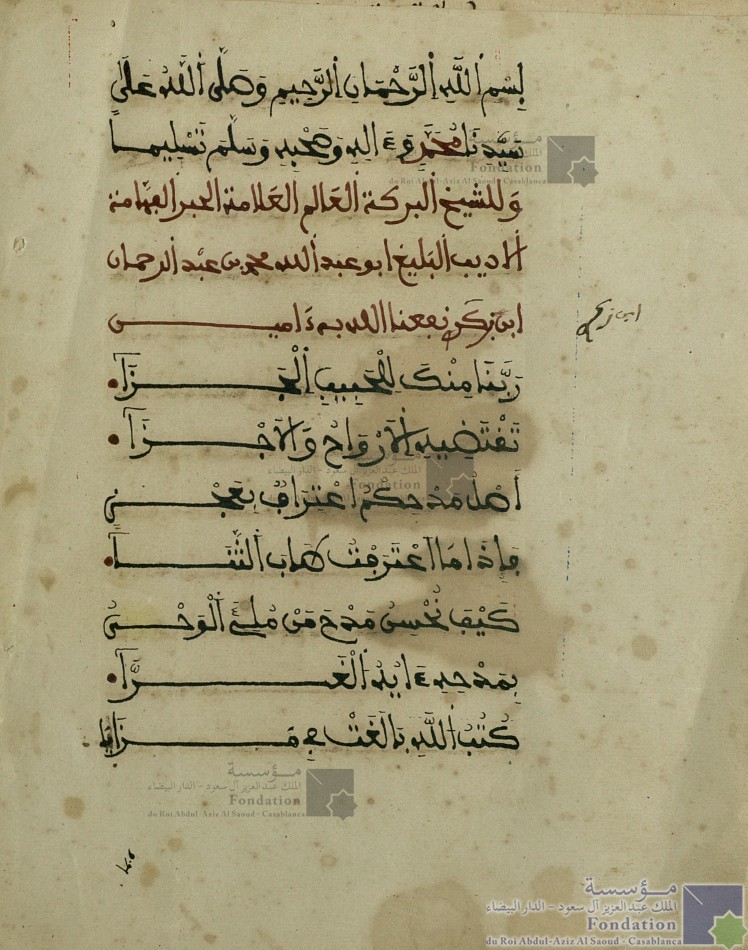 بِسْمِ اللَّهِ الرَّحْمَانِ الرَّحِيمِ وَصَلَّى اللَّهُ عَلَى
سَيِّدِنَا مُحَمَّدٍ وَءَالِهِ وَصَحْبِهِ وَسَلَّمَ تَسْلِيمــاً
وَللشيخ البركة العَالم العَلامة الحبر الفهامة
الاديب البليغ ابو عبد الله محمد بن عبد الرحمان
ابن زكري نفعنا الله به ءاميـــن
ابن زكري
رَبَّنَا مِنْكَ لِلْحَبِيبِ الْجَــزَآ
تَقْتَضِيهِ الْأَرْوَاحُ وَالْأَجْــزَآ
أَهْلَ مَدْحِكُمْ اعْتِرَافٌ بِعَجْــزٍ
فَإِذَا مَا اعْتَرَفْتُ طَابَ الثَّنَــآ
كَيْفَ يُحْسِنُ مَدْحَ مَنْ مُلِئَ الْوَحْــىُ
بِمَدْحِهِ ءَايُهُ الْغَــرَّآ
كُتُبُ اللَّهِ بَالَغَتْ فِي مَــزَايَا
مؤسسة
الملك عبد العزيز آل سعود - الدار البيضاء
Fondation
du Roi Abdul-Aziz Al Saoud - Casablanca